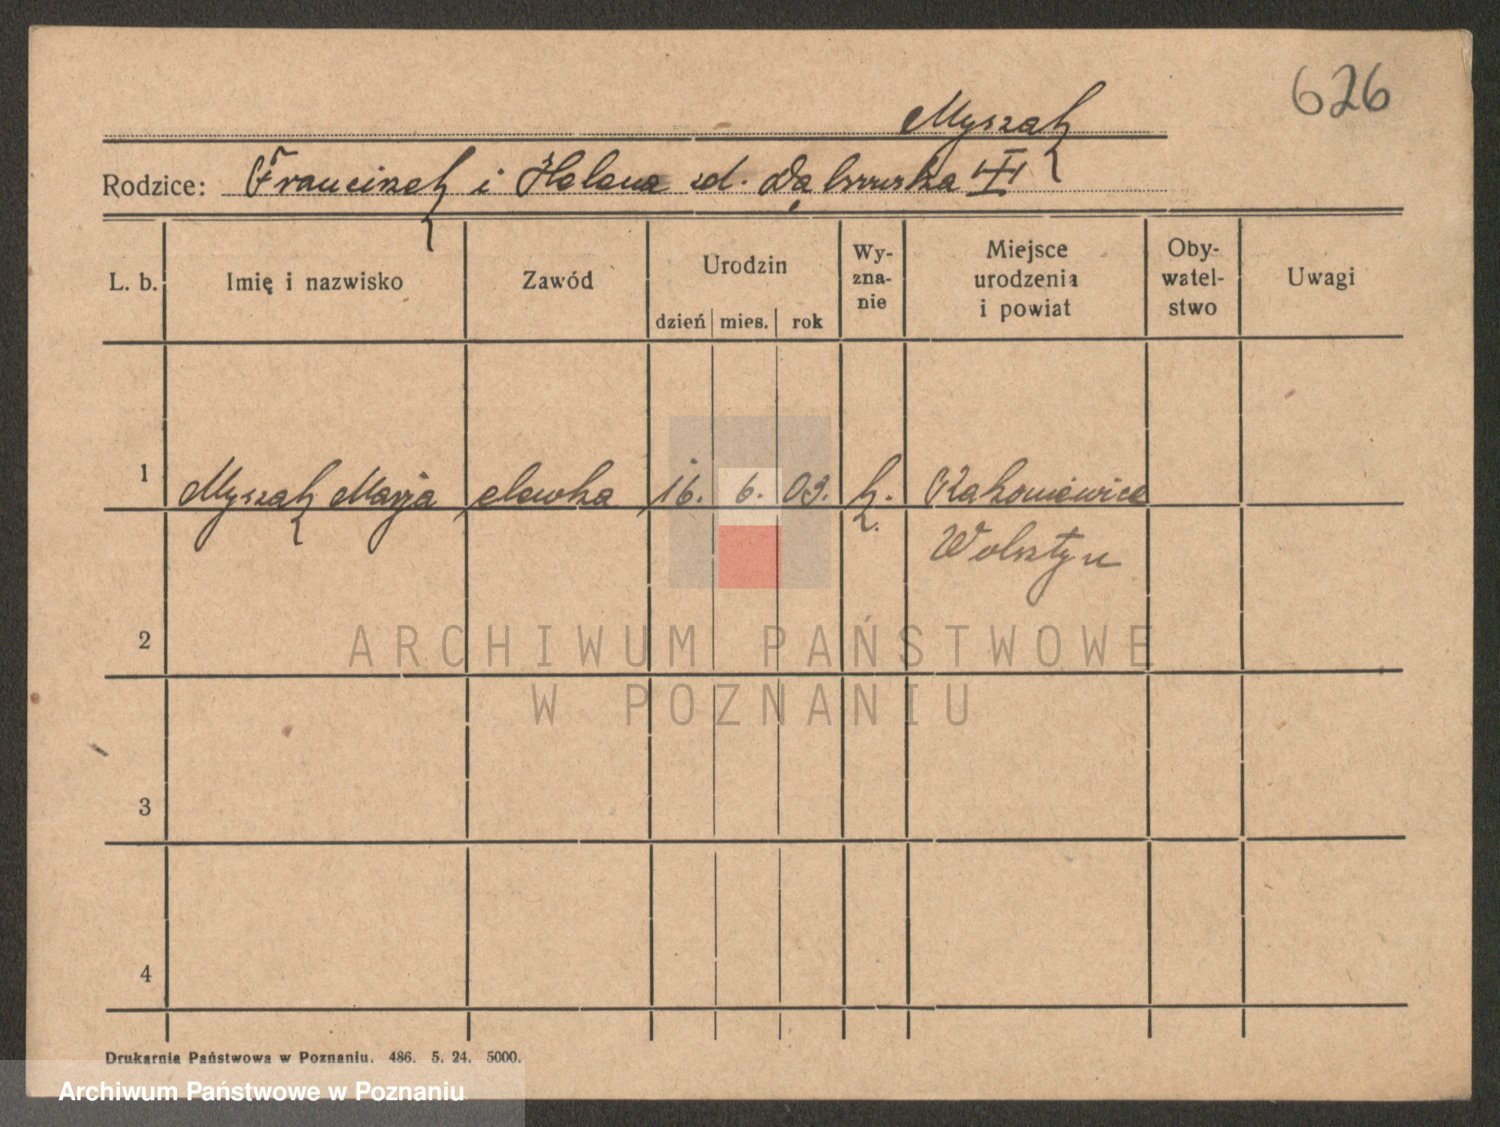 626
Myszak
Rodzice: Franciszek i Helena zd. Dąbrowska III
L. b. Imię i nazwisko Zawód Urodzin dzień mies. rok Wy-zna-nie Miejsce urodzenia i powiat Oby-watel-stwo Uwagi
1 Myszak Marja elewka 16. 6. 03. k. Rakoniewice
Wolsztyn
2
3
4
Drukarnia Państwowa w Poznaniu. 486. 5. 24. 5000.
ARCHIWUM PAŃSTWOWE
W POZNANIU
Archiwum Państwowe w Poznaniu